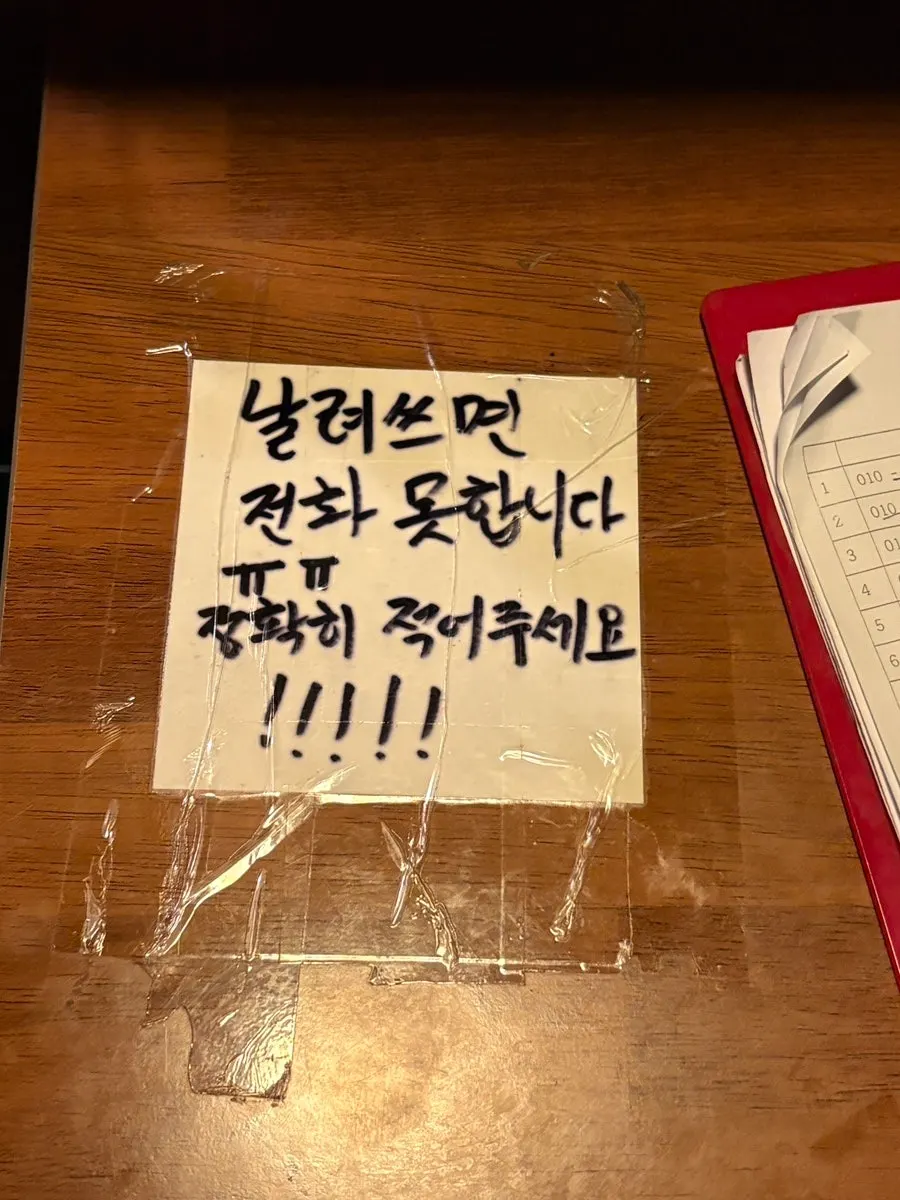 날려쓰면
전화 못합니다
ㅠㅠ
정확히 적어주세요
!!!!!
1 010
2 010
3
4
5
6